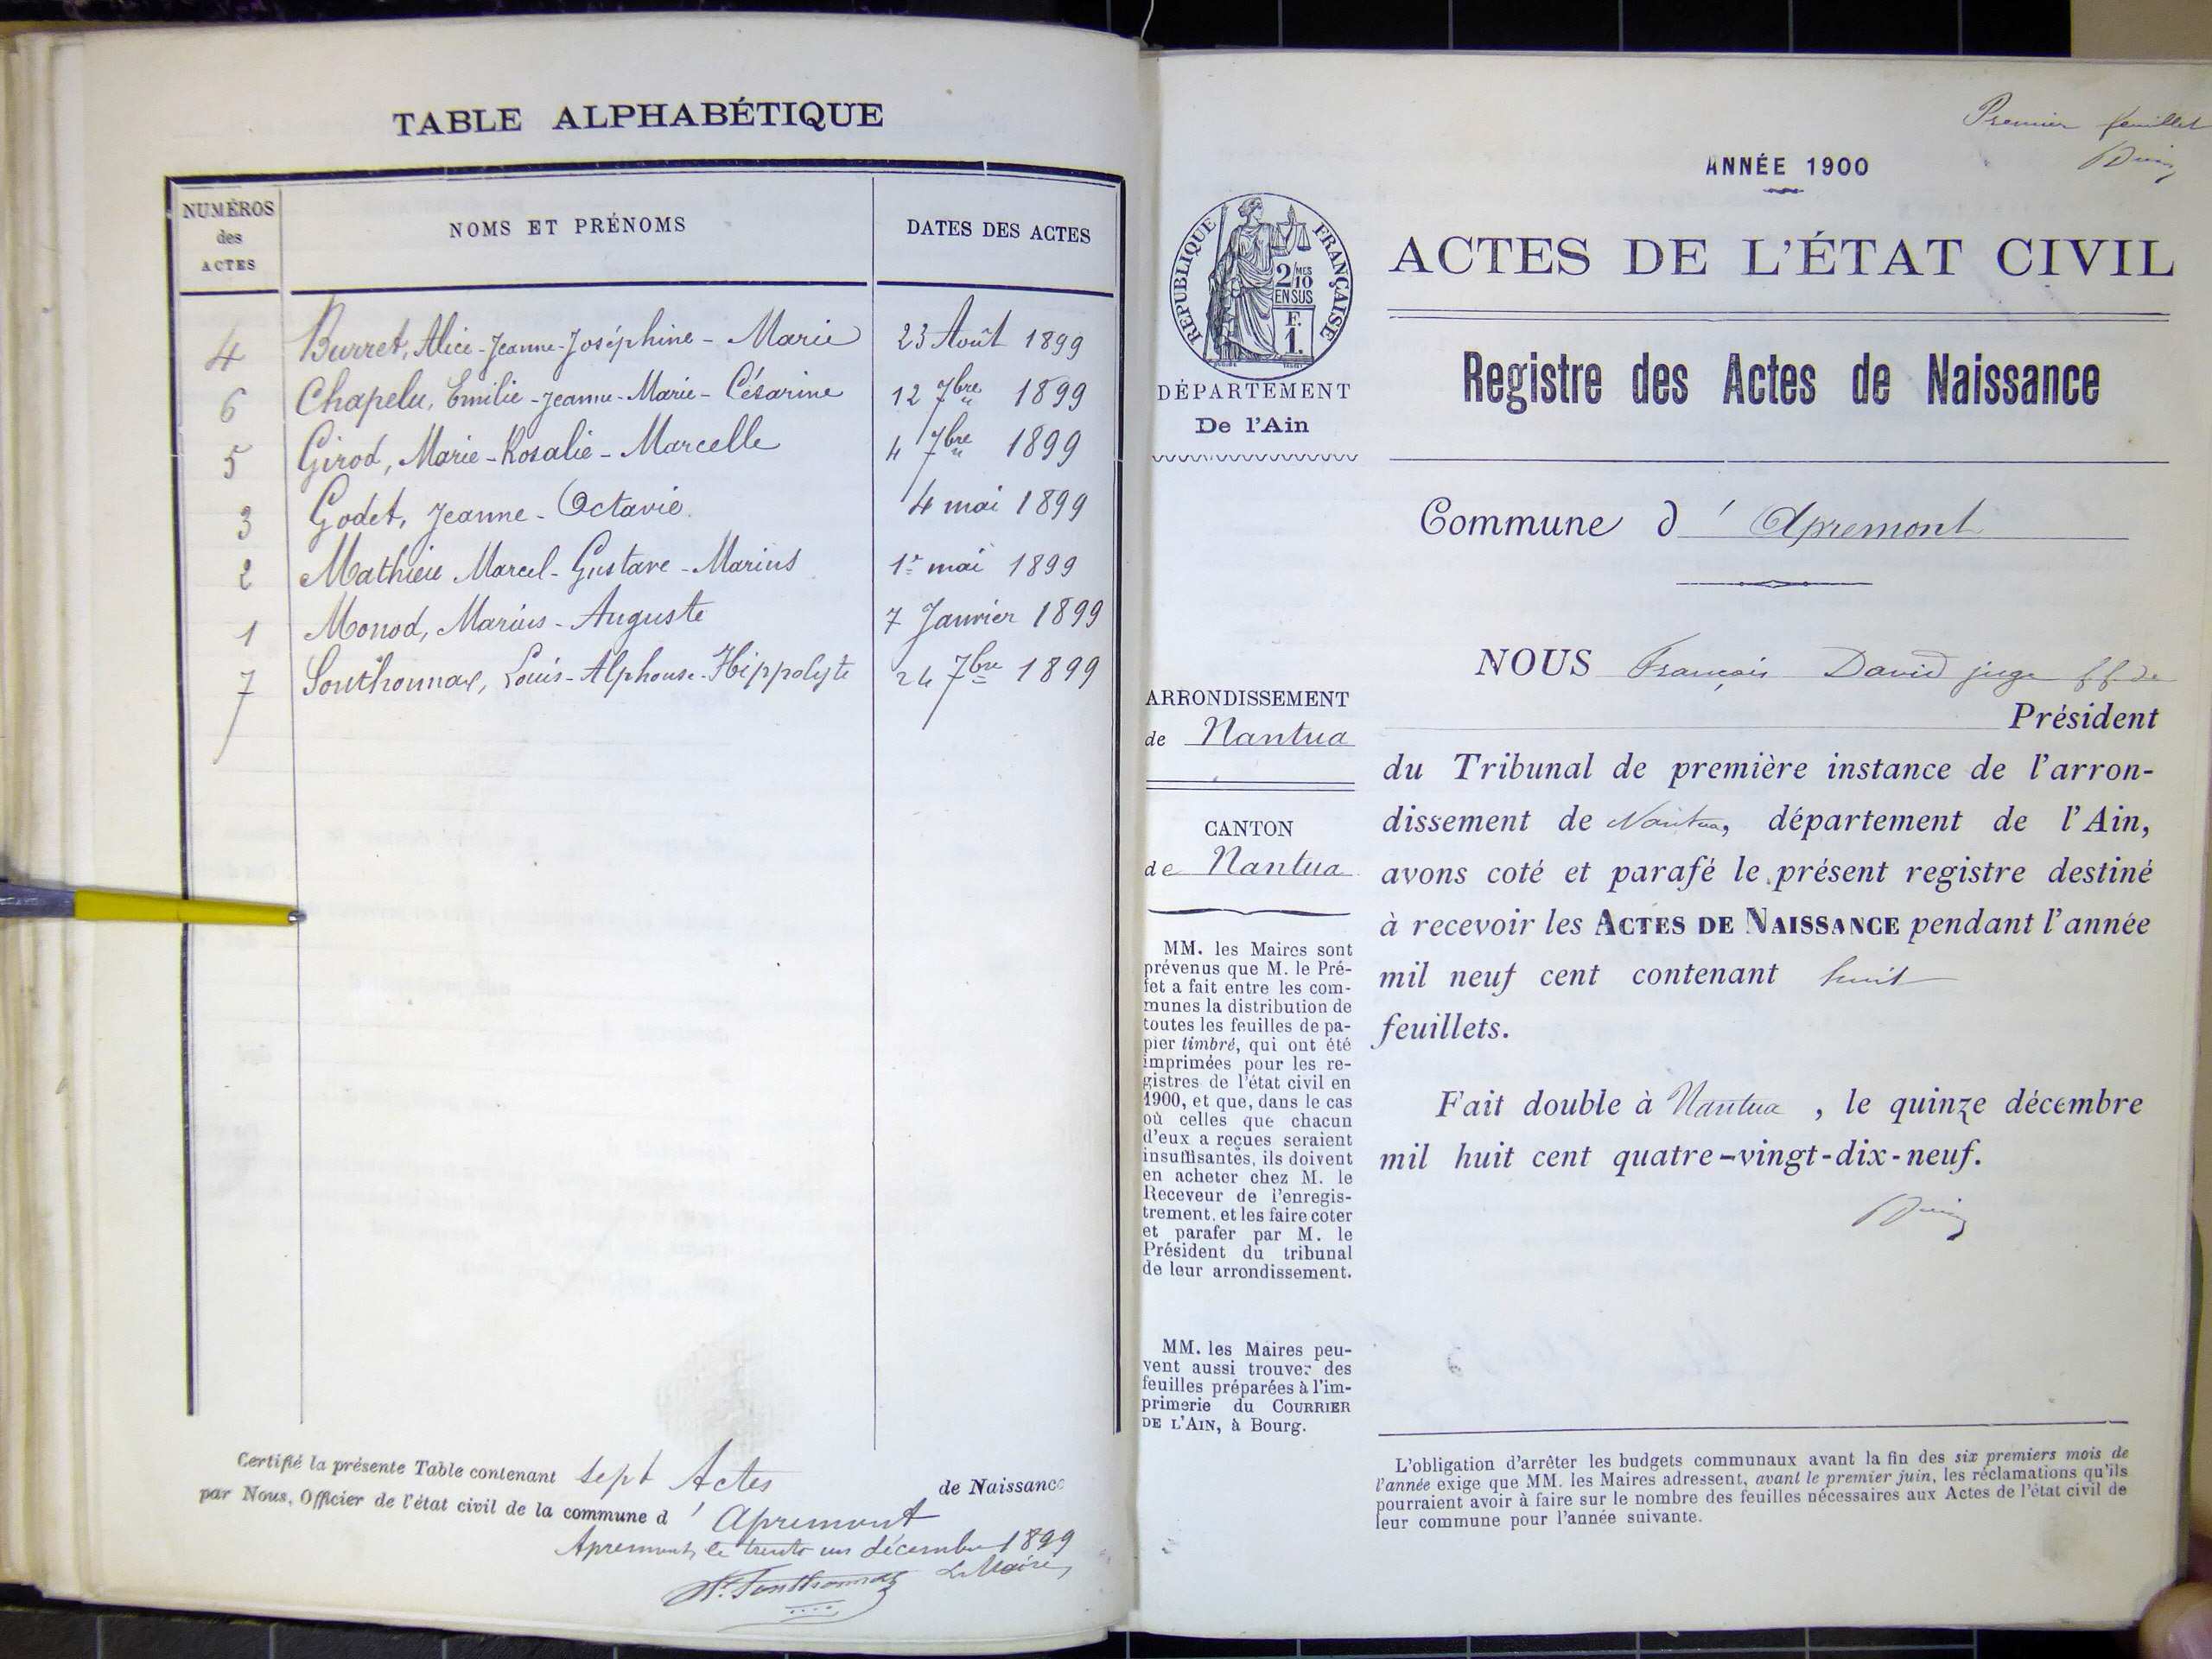 TABLE ALPHABÉTIQUE
NUMÉROS
des
ACTES
NOMS ET PRÉNOMS
DATES DES ACTES
4 Burret, Alice-Jeanne-Joséphine-Marie 23 Août 1899
6 Chapelu, Emilie-Jeanne-Marie-Césarine 12 7bre 1899
5 Girod, Marie-Rosalie-Marcelle 4 7bre 1899
3 Godet, Jeanne-Octavie. 4 mai 1899
2 Mathieu Marcel-Gustave-Marius 1er mai 1899
1 Monod, Marius-Auguste 7 Janvier 1899
7 Sonthonnax, Louis-Alphonse-Hippolyte 24 7bre 1899
Certifié la présente Table contenant sept Actes de Naissance
par Nous, Officier de l'état civil de la commune d'Apremont
Apremont, le trente un décembre 1899
Le Maire,
Sonthonnax
Premier feuillet
ANNÉE 1900
RÉPUBLIQUE FRANÇAISE
2/10 MES
EN SUS
F.
1.
DÉPARTEMENT
De l'Ain
ARRONDISSEMENT
de Nantua
CANTON
de Nantua
MM. les Maires sont
prévenus que M. le Pré-
fet a fait entre les com-
munes la distribution de
toutes les feuilles de pa-
pier timbré, qui ont été
imprimées pour les re-
gistres de l'état civil en
1900, et que, dans le cas
où celles que chacun
d'eux a reçues seraient
insuffisantes, ils doivent
en acheter chez M. le
Receveur de l'enregis-
trement, et les faire coter
et parafer par M. le
Président du tribunal
de leur arrondissement.
MM. les Maires peu-
vent aussi trouver des
feuilles préparées à l'im-
primerie du COURRIER
DE L'AIN, à Bourg.
ACTES DE L'ÉTAT CIVIL
Registre des Actes de Naissance
Commune d'Apremont
NOUS François David juge ff de
Président
du Tribunal de première instance de l'arron-
dissement de Nantua, département de l'Ain,
avons coté et parafé le présent registre destiné
à recevoir les ACTES DE NAISSANCE pendant l'année
mil neuf cent contenant huit
feuillets.
Fait double à Nantua, le quinze décembre
mil huit cent quatre-vingt-dix-neuf.
L'obligation d'arrêter les budgets communaux avant la fin des six premiers mois de
l'année exige que MM. les Maires adressent, avant le premier juin, les réclamations qu'ils
pourraient avoir à faire sur le nombre des feuilles nécessaires aux Actes de l'état civil de
leur commune pour l'année suivante.